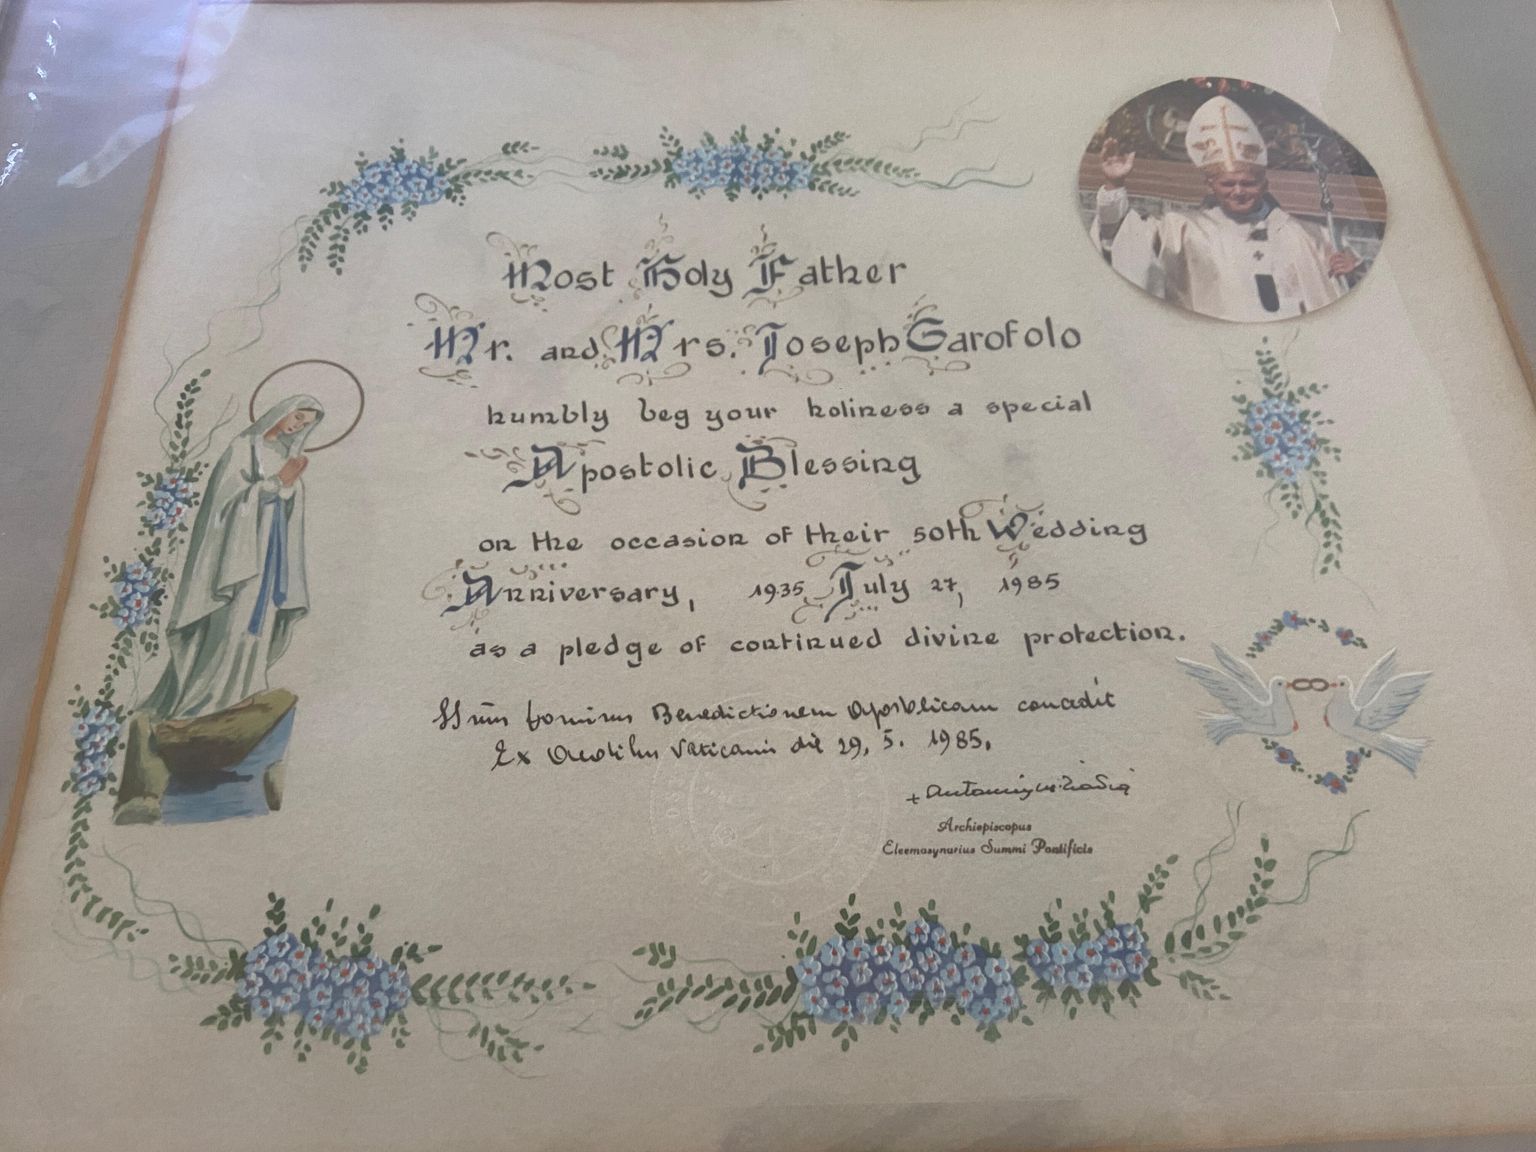 Most Holy Father
Mr. and Mrs. Joseph Garofolo
humbly beg your holiness a special
Apostolic Blessing
on the occasion of their 50th Wedding
Anniversary, 1935 July 27, 1985
as a pledge of continued divine protection.
Benedictionem Apostolicam concedit
Ex Vaticanis die 29, 5. 1985.
+ Antonius
Archiepiscopus
Eleemosynarius Summi Pontificis